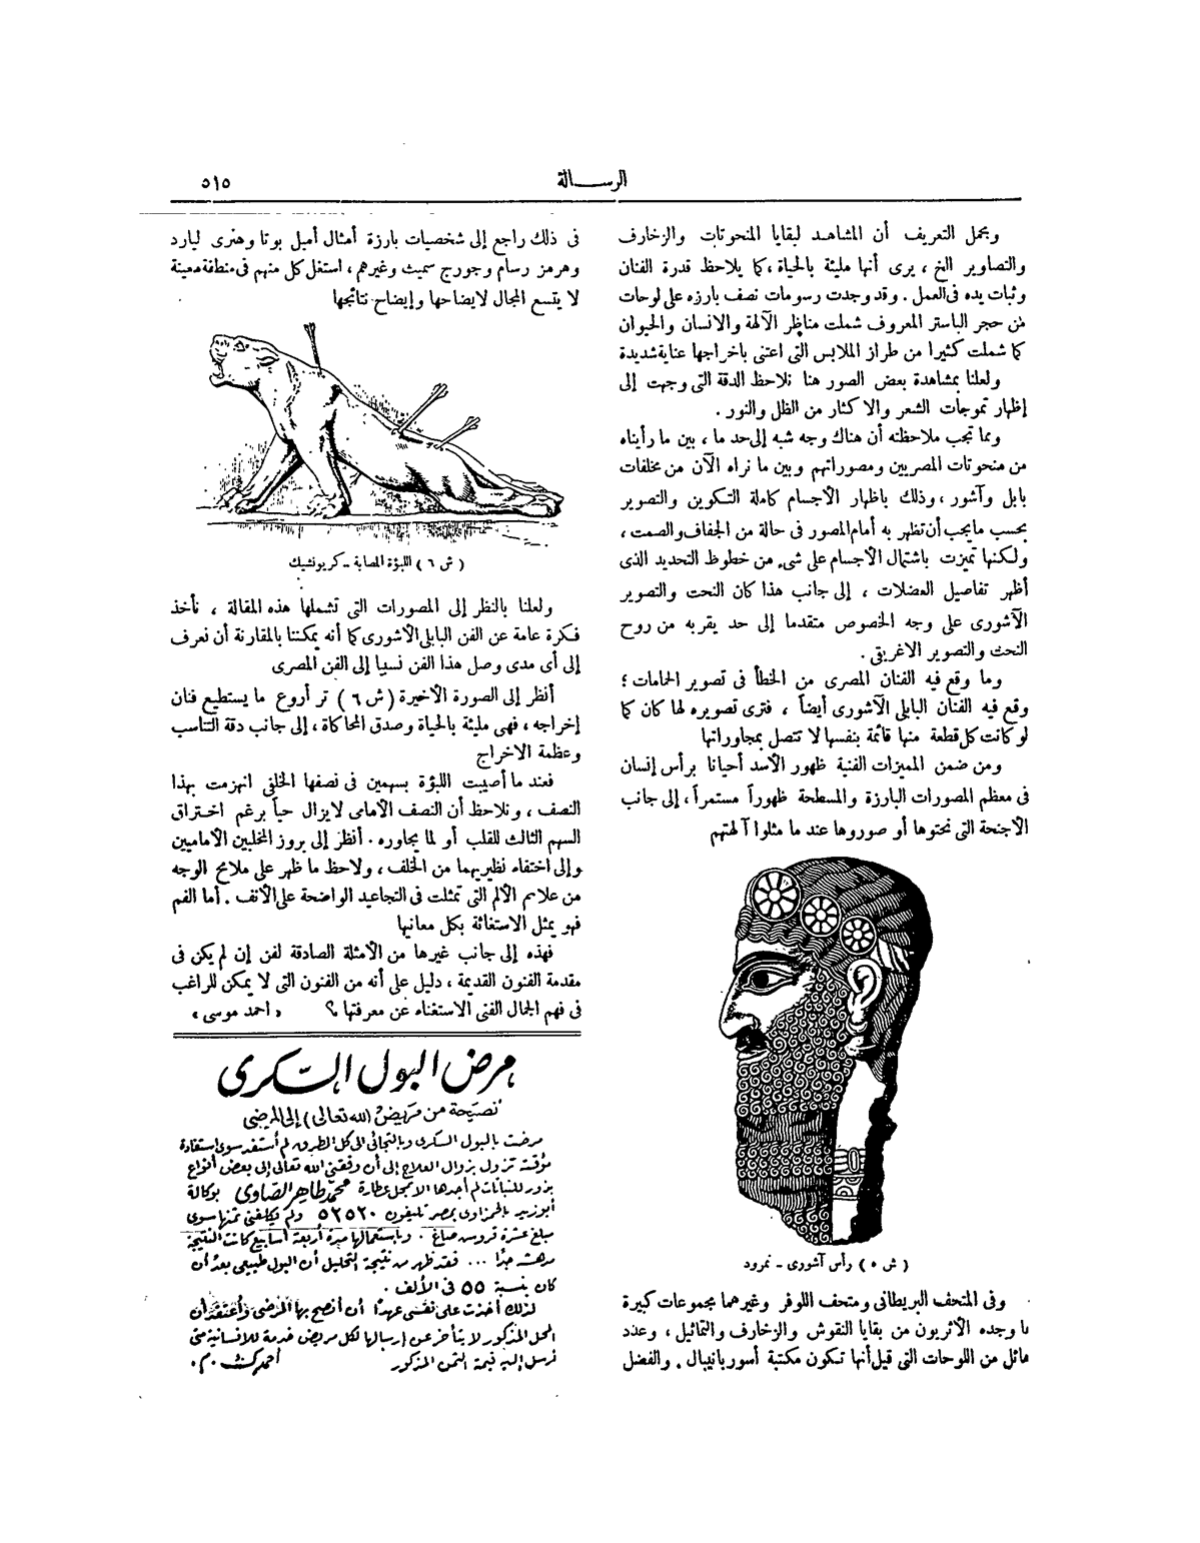 الرسالة
٥١٥
ومجمل التعريف أن المشاهد لبقايا المنحوتات والزخارف
والتصاوير الخ ، يرى أنها مليئة بالحياة ، كما يلاحظ قدرة الفنان
وثبات يده فى العمل . وقد وجدت رسومات نصف بارزه على لوحات
من حجر الباستر المعروف شملت مناظر الآلهة والانسان والحيوان
كما شملت كثيرا من طراز الملابس التى اعتنى باخراجها عناية شديدة
ولعلنا بمشاهدة بعض الصور هنا نلاحظ الدقة التى وجهت إلى
إظهار تموجات الشعر والاكثار من الظل والنور .
ومما تجب ملاحظته أن هناك وجه شبه إلى حد ما ، بين ما رأيناه
من منحوتات المصريين ومصوراتهم وبين ما نراه الآن من مخلفات
بابل وآشور ، وذلك باظهار الأجسام كاملة التكوين والتصوير
بحسب مايجب أن تظهر به أمام المصور فى حالة من الجفاف والصمت ،
ولكنها تميزت باشتمال الأجسام على شىء من خطوط التحديد الذى
أظهر تفاصيل العضلات ، إلى جانب هذا كان النحت والتصوير
الآشورى على وجه الخصوص متقدما إلى حد يقربه من روح
النحت والتصوير الاغريقى .
وما وقع فيه الفنان المصرى من الخطأ فى تصوير الحامات ؛
وقع فيه الفنان البابلى الآشورى أيضاً ، فترى تصويره لها كان كما
لو كانت كل قطعة منها قائمة بنفسها لا تتصل بمجاوراتها
ومن ضمن المميزات الفنية ظهور الأسد أحيانا برأس إنسان
فى معظم المصورات البارزة والمسطحة ظهوراً مستمراً ، إلى جانب
الأجنحة التى نحتوها أو صوروها عند ما مثلوا آلهتهم
( ش ٥ ) رأس آشورى - نمرود
وفى المتحف البريطانى ومتحف اللوفر وغيرهما مجموعات كبيرة
مما وجده الأثريون من بقايا النقوش والزخارف والتماثيل ، وعدد
هائل من اللوحات التى قيل أنها تكون مكتبة أسوربانيبال . والفضل
فى ذلك راجع إلى شخصيات بارزة أمثال أميل بوتا وهنرى ليارد
وهرمز رسام وجورج سميث وغيرهم ، استغل كل منهم فى منطقة معينة
لا يتسع المجال لايضاحها وإيضاح نتائجها
( ش ٦ ) اللبؤة المصابة - كريونشيك
ولعلنا بالنظر إلى المصورات التى تشملها هذه المقالة ، نأخذ
فكرة عامة عن الفن البابلى الآشورى كما أنه يمكننا بالمقارنة أن نعرف
إلى أى مدى وصل هذا الفن نسبيا إلى الفن المصرى
أنظر إلى الصورة الأخيرة ( ش ٦ ) تر أروع ما يستطيع فنان
إخراجه ، فهى مليئة بالحياة وصدق المحاكاة ، إلى جانب دقة التناسب
وعظمة الاخراج
فعند ما أصيبت اللبؤة بسهمين فى نصفها الخلفى انهزمت بهذا
النصف ، ونلاحظ أن النصف الأمامى لايزال حياً برغم اختراق
السهم الثالث للقلب أو لما يجاوره . أنظر إلى بروز المخلبين الأماميين
وإلى اختفاء نظيريهما من الخلف ، ولاحظ ما ظهر على ملامح الوجه
من علاسم الألم التى تمثلت فى التجاعيد الواضحة على الأنف . أما الفم
فهو يمثل الاستغاثة بكل معانيها
فهذه إلى جانب غيرها من الأمثلة الصادقة لفن إن لم يكن فى
مقدمة الفنون القديمة ، دليل على أنه من الفنون التى لا يمكن للراغب
فى فهم الجمال الفنى الاستغناء عن معرفتها ؟ « احمد موسى »
مرض البول السكرى
نصيحة من مريض (لله تعالى) إلى المرضى
مرضت بالبول السكرى وبالتجائى الى كل الطرق لم أستفد سوى استفادة
مؤقتة تزول بزوال العلاج إلى أن وفقنى الله تعالى إلى بعض أنواع
بزور للنباتات لم أجدها الا بمحل عطارة محمد طاهر الصاوى بوكالة
أبوزيد بالحمزاوى بمصر تليفون ٥٢٥٢٠ ولم يكلفنى ثمنها سوى
مبلغ عشرة قروش صاغ . وباستعمالها مدة أربعة أسابيع كانت النتيجة
مدهشة جدًا ... فقد ظهر من نتيجة التحليل أن البول طبيعى بعد أن
كان بنسبة ٥٥ فى الألف .
لذلك أخذت على نفسى عهدًا أن أنصح بها المرضى وأعتقد أن
المحل المذكور لا يتأخر عن إرسالها لكل مريض خدمة للانسانية متى
أرسل إليه قيمة الثمن المذكور